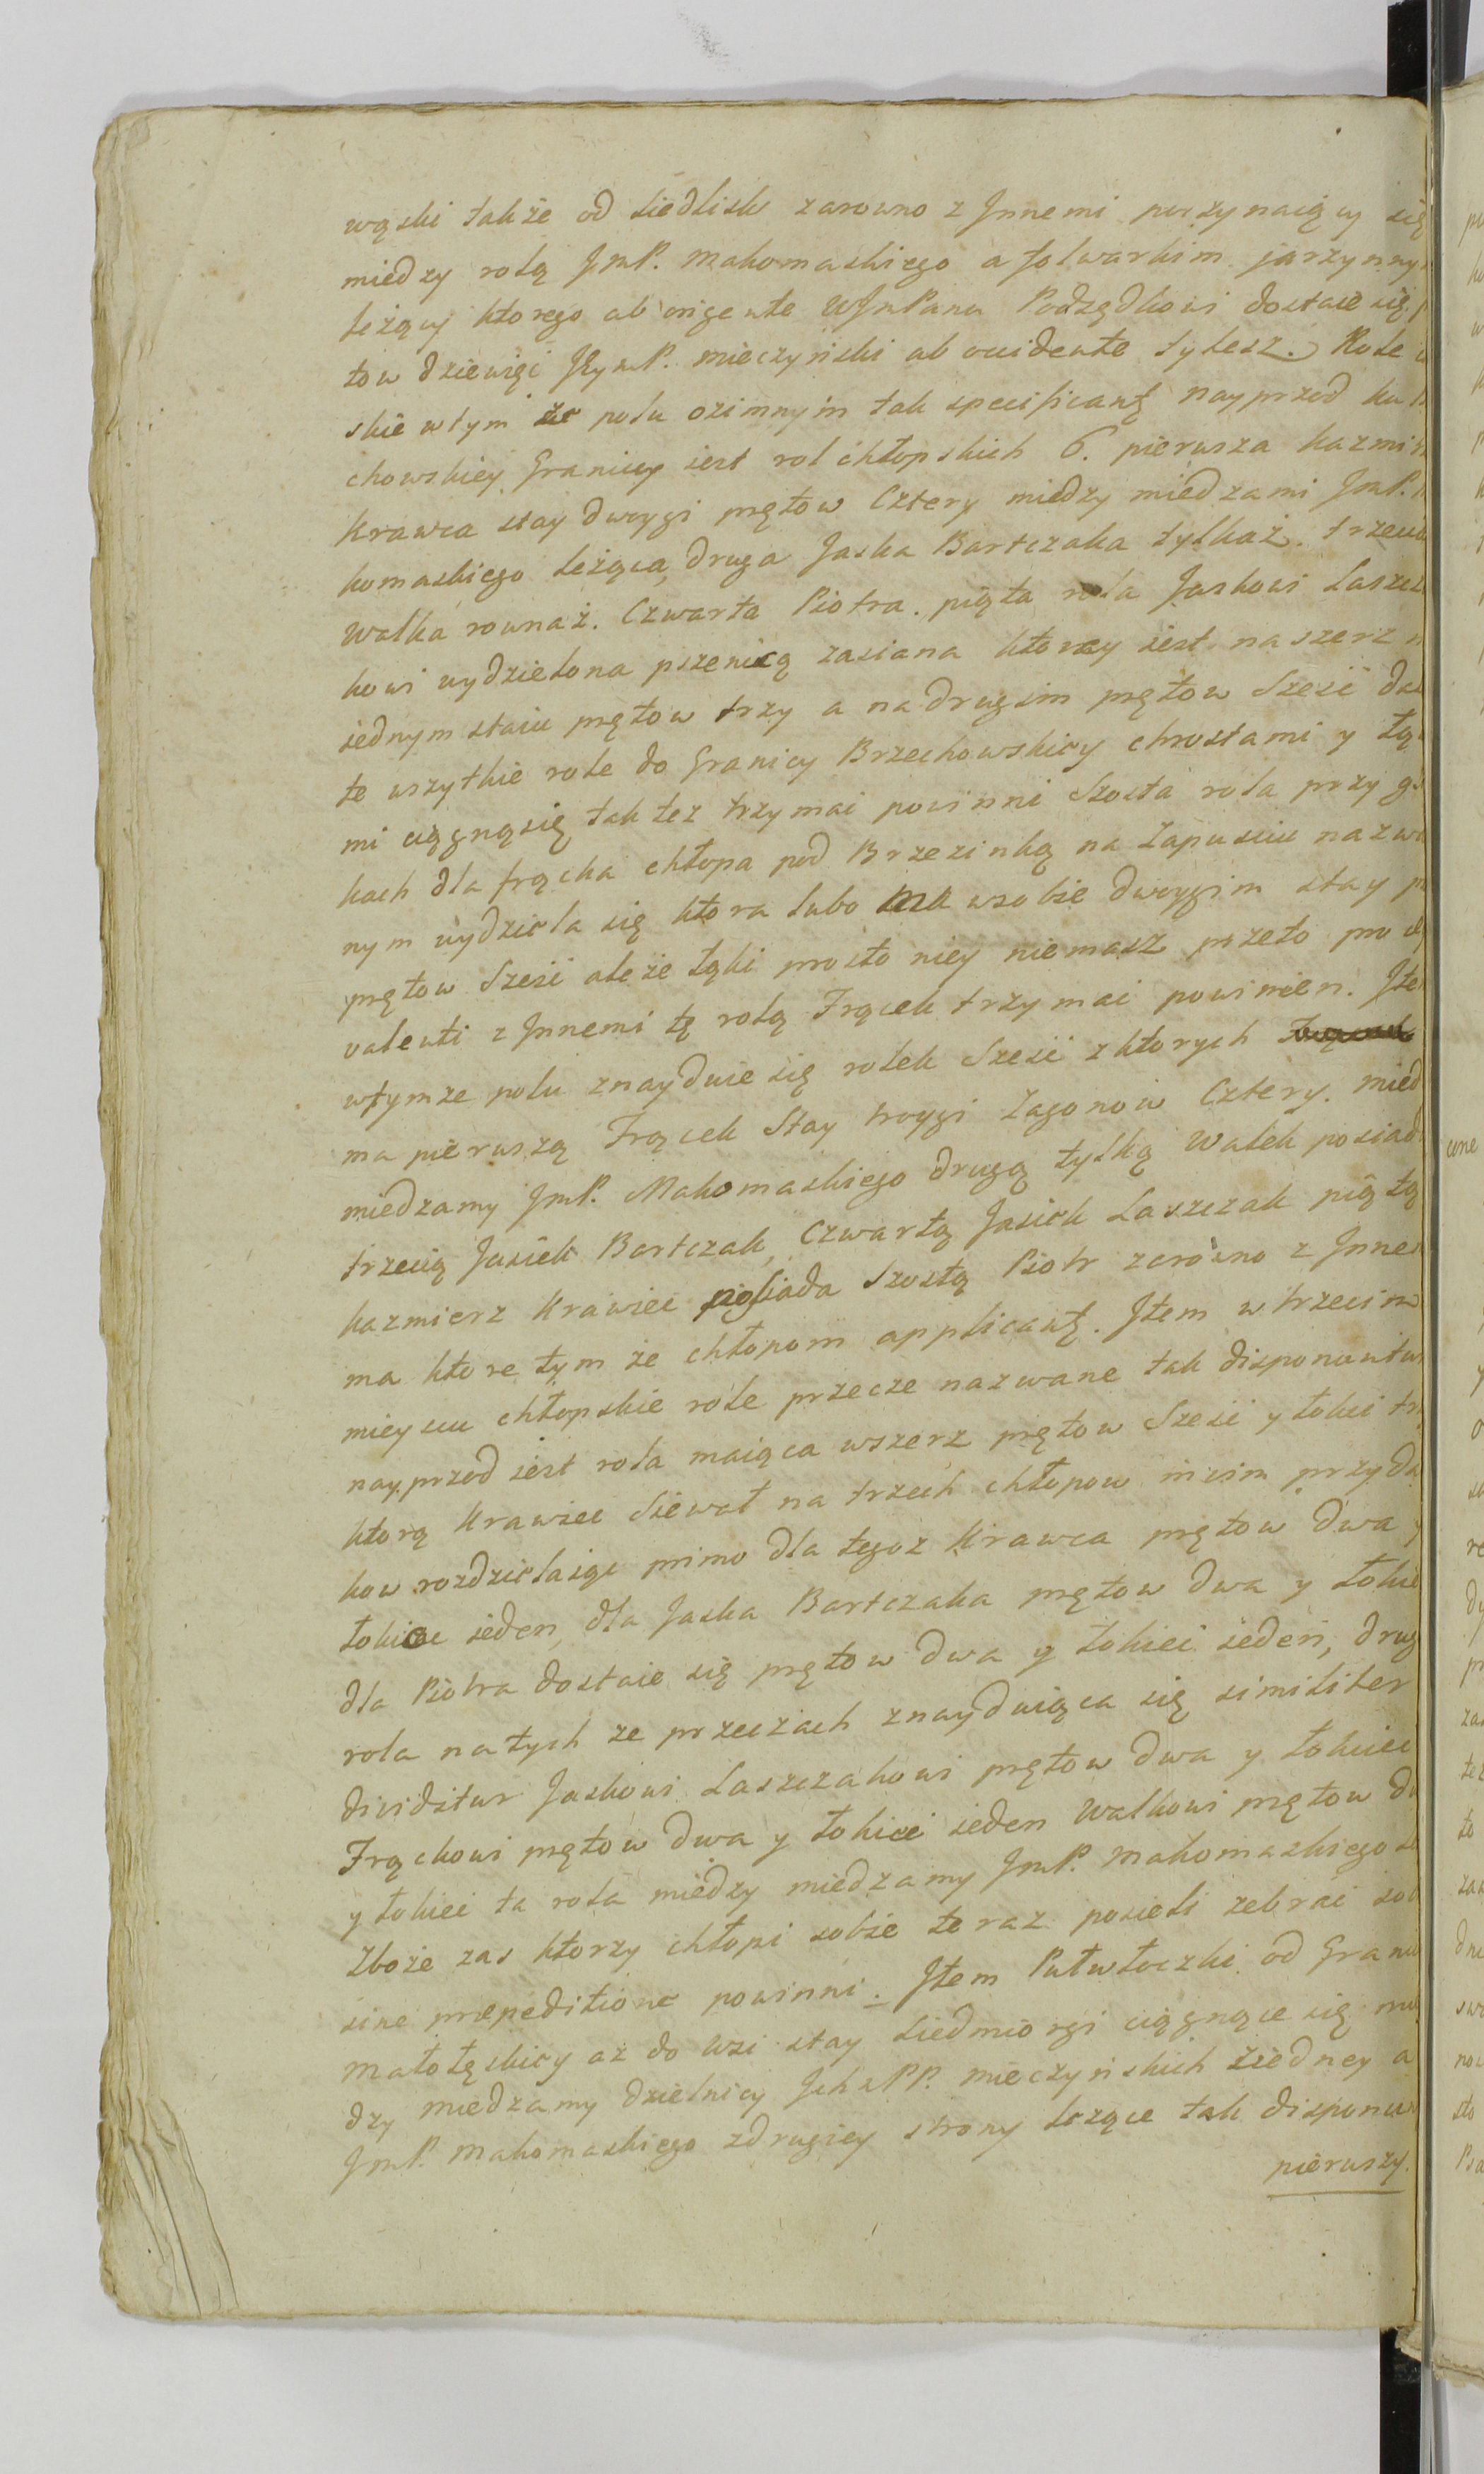 wąski także od siedlisk zarowno z Jnnemi poczynaiący się
miedzy rolą JmP. Makomaskiego a folwarkim jarzynny
leżący ktorego ab origente WJmPanu Podsędkowi dostaie się
tow dziewięć JPymP. Mieczyński ab occidente tylesz. Role
skie wtym ze polu ozimnym tak specificantę nayprzod ku
chowskiey Granicy iest rol chłopskich 6. pierwsza kazmi
Krawca stay dwoygi prętow Cztery miedzy miedzami JmP.
komaskiego leżąca, druga Jaska Bartczaka tylkaż. trzecia
Walka rownaż. Czwarta Piotra. piąta rola Jaskowi Laszcz
kowi wydzielona pszenicą zasiana ktorey iest na szerz
iednym staiu prętow trzy a na drugim prętow Sześć
te wszytkie role do Granicy Brzechowskiey chrostami y łą
mi ciągnąsię tak tez trzymać powinni Szosta rola przy
kach dla frącka chłopa pod Brzezinką na Zapusciu nazwa
nym wydziela się ktora lubo ma wsobie dwoygim stay
prętow Sześć ale że łąki prosto niey niemasz przeto pro
valenti z Jnnemi tę rolą Frącek trzymać powinien. Jte
wtymze polu znayduie się rolek Sześć z ktorych
ma pierwszą Frącek Stay troygi Zagonow Cztery. mied
miedzamy JmP. Makomaskiego drugą tylką Walek posiad
trzecią Jasiek Bartczak, Czwartą Jasiek Laszczak piątą
kazmierz Krawiec posiada Szostą Piotr zarowno z Jnne
ma ktore tym że chłopom applicantę. Jtem w trzecim
mieyscu chłopskie role przecze nazwane tak disponuntur
nayprzod iest rola maiąca wszerz prętow Sześć y łokci
ktorą Krawiec Siewał na trzech chłopow
kow rozdzielaiąc primo dla tegoz Krawca prętow dwa y
łokiec ieden, dla Jaska Bartczaka prętow dwa y łokie
dla Piotra dostaie się prętow dwa y łokieć ieden, drug
rola natych ze przeczach znayduiąca się similiter
dividitur Jaskowi Laszczakowi prętow dwa y łokiec
Frąckowi prętow dwa y łokieć ieden Walkowi prętow
y łokieć ta rola miedzy miedzamy JmP. Makomaskiego
Zboże zas ktorzy chłopi sobie teraz posieli zebrać
sine præpeditione powinni. Jtem Pułwłoczki od Grani
Małołęskiey az do wsi stay Siedmiorgi ciągnące się
dzy miedzamy dzielnicy JchmPP. Mieczyńskich ziedney a
JmP. Makomaskiego zdrugiey strony lezące tak disponu
pierwszy.